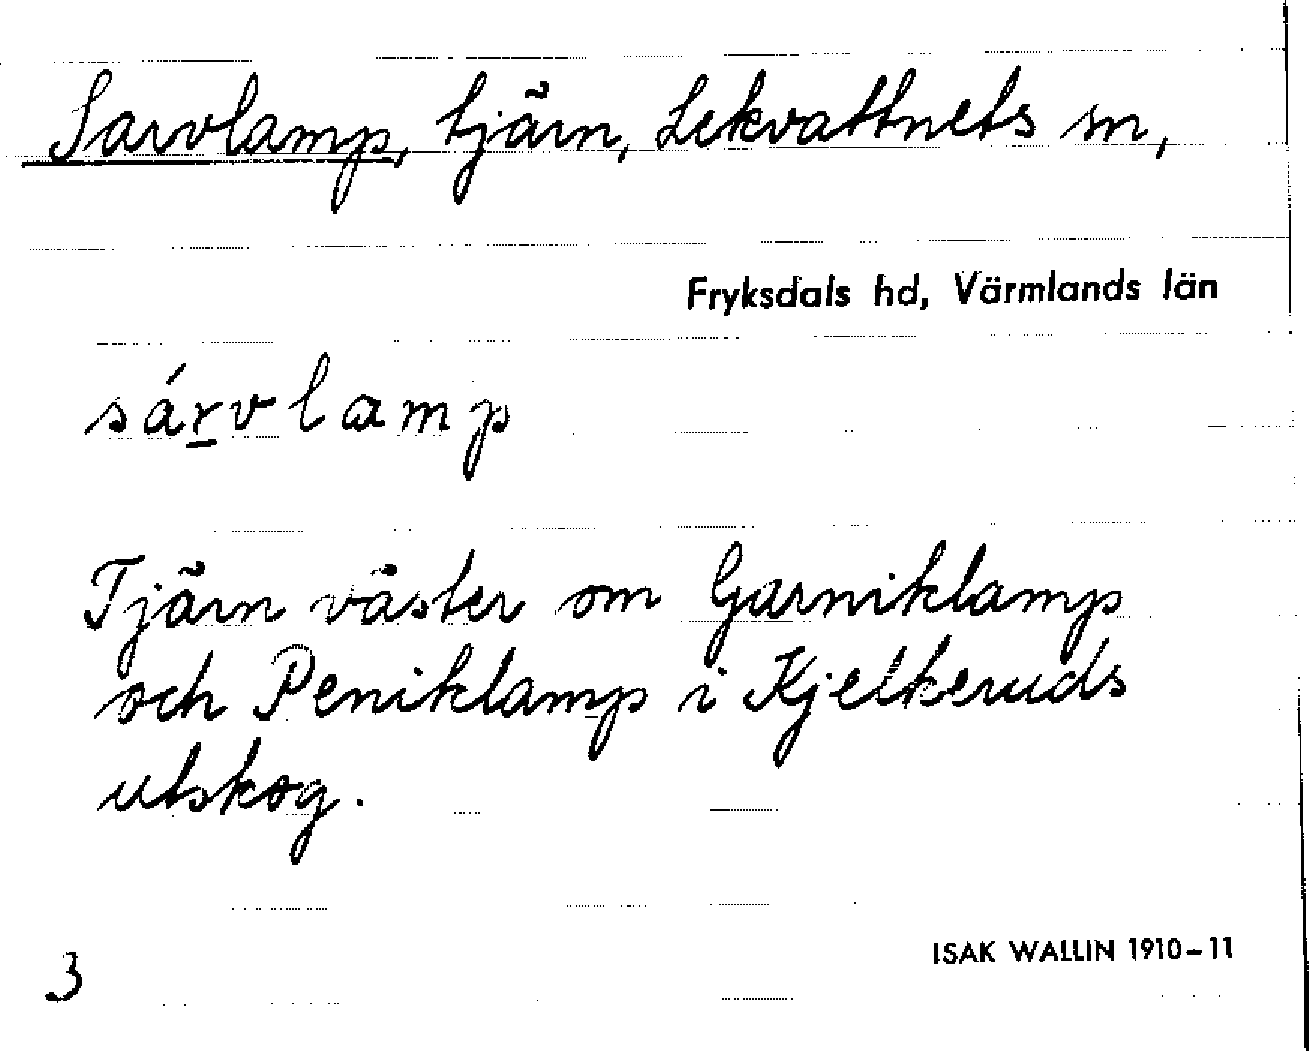 Sarvlamp, tjärn, Lekvattnets sn,
Fryksdals hd, Värmlands län
sárvlamp
Tjärn väster om Garniklamp
och Peniklamp i Kjelkeruds
utskog.
3
ISAK WALLIN 1910-11